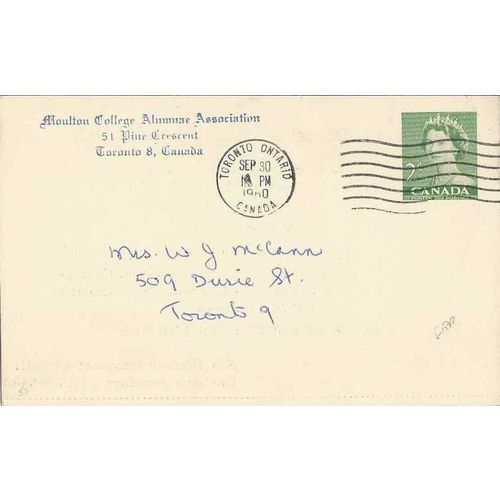 Moulton College Alumnae Association
51 Pine Crescent
Toronto 8, Canada
TORONTO ONTARIO
SEP 30
PM
1960
CANADA
2
CANADA
Mrs. W J. McCann
509 Durie St.
Toronto 9